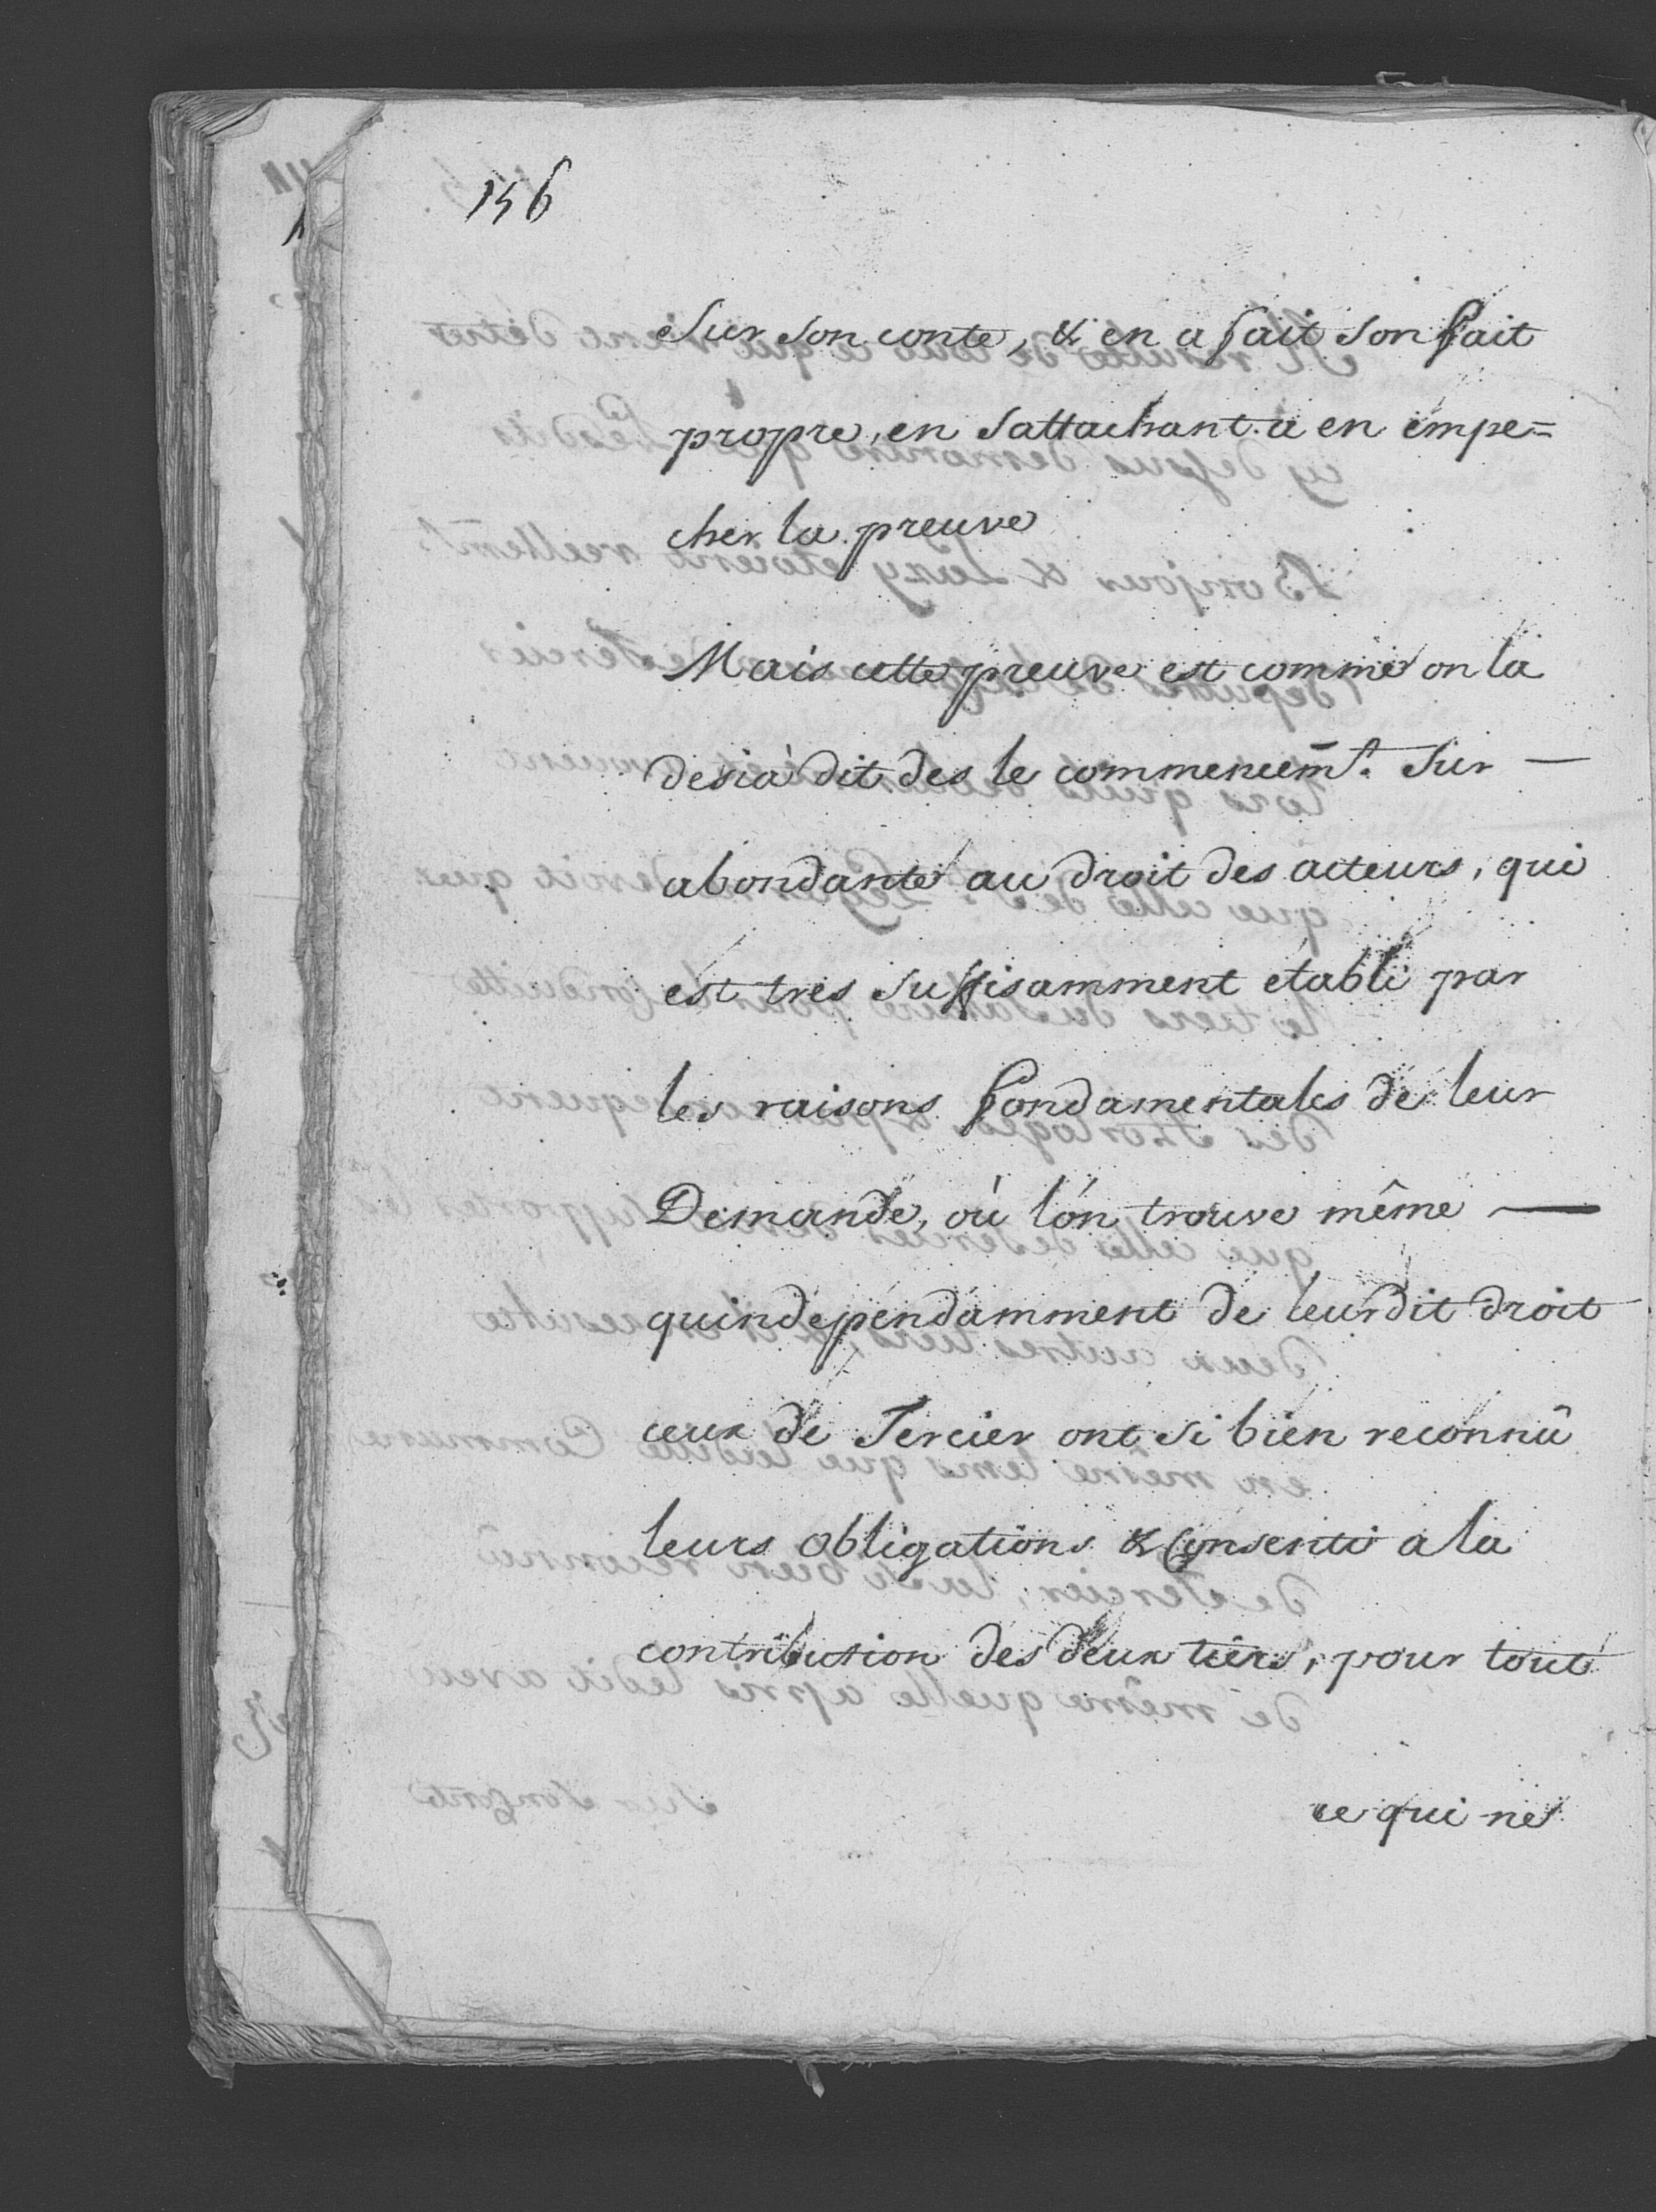 156
Sur son conte, & en a fait son fait
propre, en sattachant a en empe=
cher la preuve
Mais cette preuve est comme on la
desia dit des le commencem̄t. Sur —
abondante au droit des acteurs, qui
est tres suffisamment etabli par
les raisons fondamentales de leur
Demande, où l'on trouve même —
quindependamment de leurdit droit
ceux de Sercier ont si bien reconnû
leurs obligations & Consenti a la
contribution des deux tiers, pour tout
ce qui nes